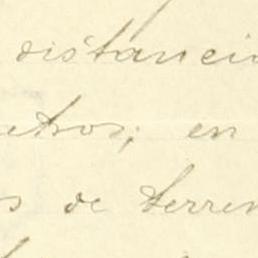 distanci
etros; en
s de terren